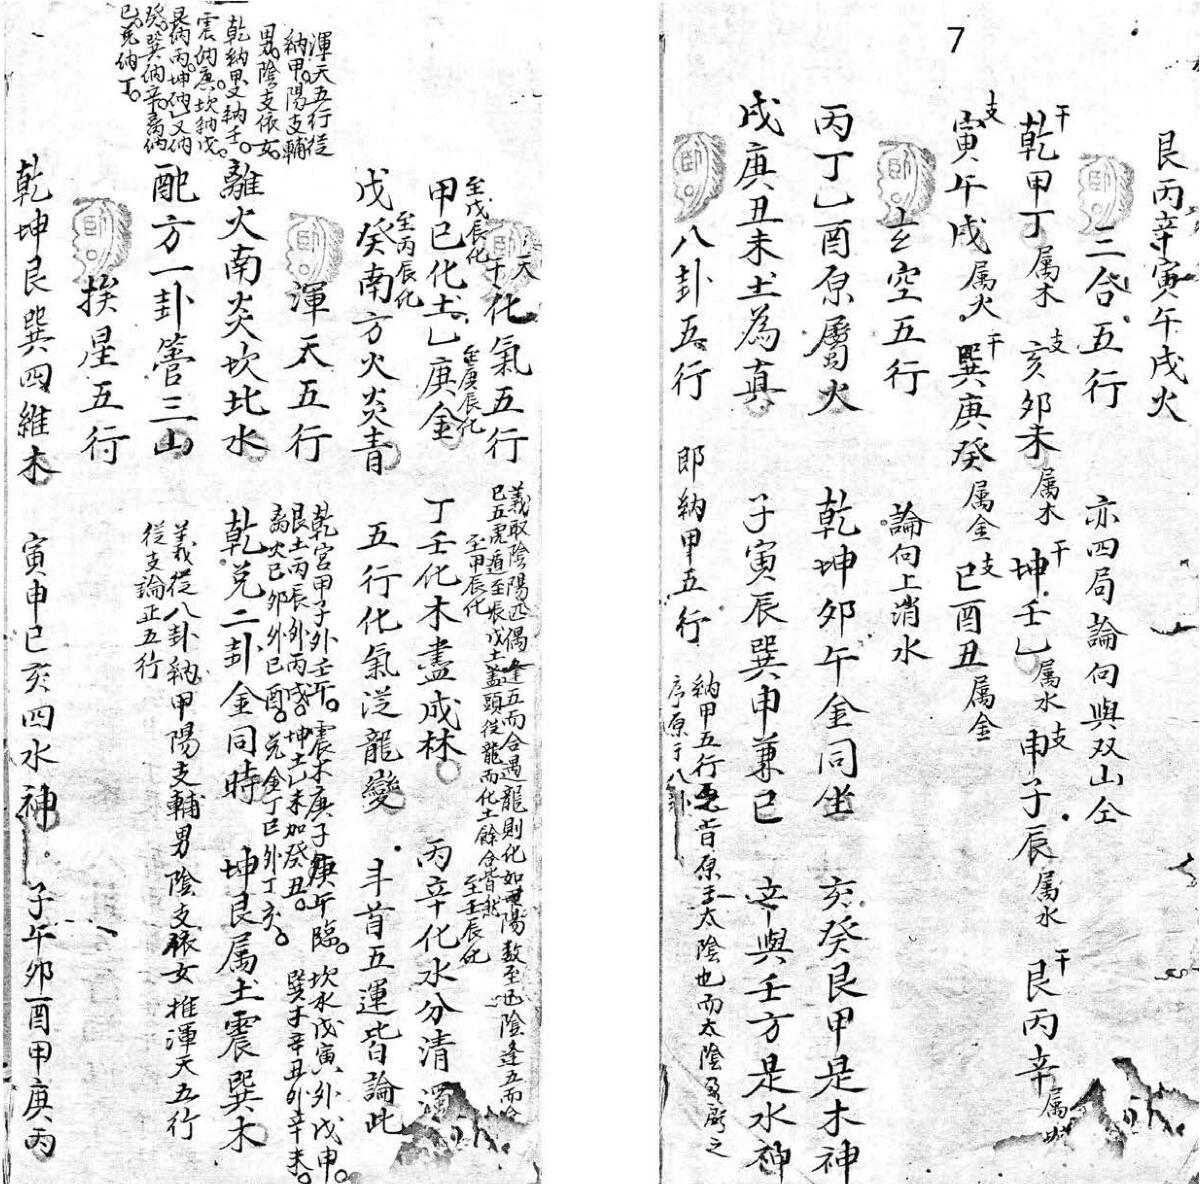 7
艮丙辛寅午戌火
三合五行 亦四局論向與双山仝
乾甲丁属木 亥卯未属木 坤壬乙属水 申子辰属水 艮丙辛属
干 支 干 支 干
寅午戌属火 巽庚癸属金 巳酉丑属金
支 干 支
玄空五行 論向上消水
丙丁乙酉原屬火 乾坤卯午金同坐 亥癸艮甲是木神
戌庚丑未土為真 子寅辰巽申兼巳 辛與壬方是水神
八卦五行 即納甲五行 納甲五行
序原于八卦
昔原 太陰也而太陰
天干化氣五行 義取陰陽匹偶逢五而合遇龍則化如 陽数至 陰逢五而合
巳五虎遁至辰戊土盖頭從龍而化土餘合皆
甲己化土乙庚金 丁壬化木盡成林 丙辛化水分清濁
至戊辰化 至庚辰化 至甲辰化 至壬辰化
戊癸南方火炎青 五行化氣從龍變 斗首五運皆論此
至丙辰化
渾天五行 乾宮甲子外壬午。震木庚子庚午臨。坎水戊寅外戊申。
艮土丙辰外丙戌。坤土乙未加癸丑。巽木辛丑外辛未。
离火己卯外己酉。兑金丁巳外丁亥。
渾天五行從
納甲。陽支輔
男。陰支依女。
乾納甲又納壬。
震納庚。坎納戊。
艮納丙。坤納乙又納
癸。巽納辛。离納
己。兑納丁。
離火南炎坎北水 乾兑二卦金同時 坤艮属土震巽木
配方一卦管三山 義從八卦納甲陽支輔男陰支依女推渾天五行
從支論正五行
挨星五行
乾坤艮巽四維木 寅申巳亥四水神。子午卯酉甲庚丙